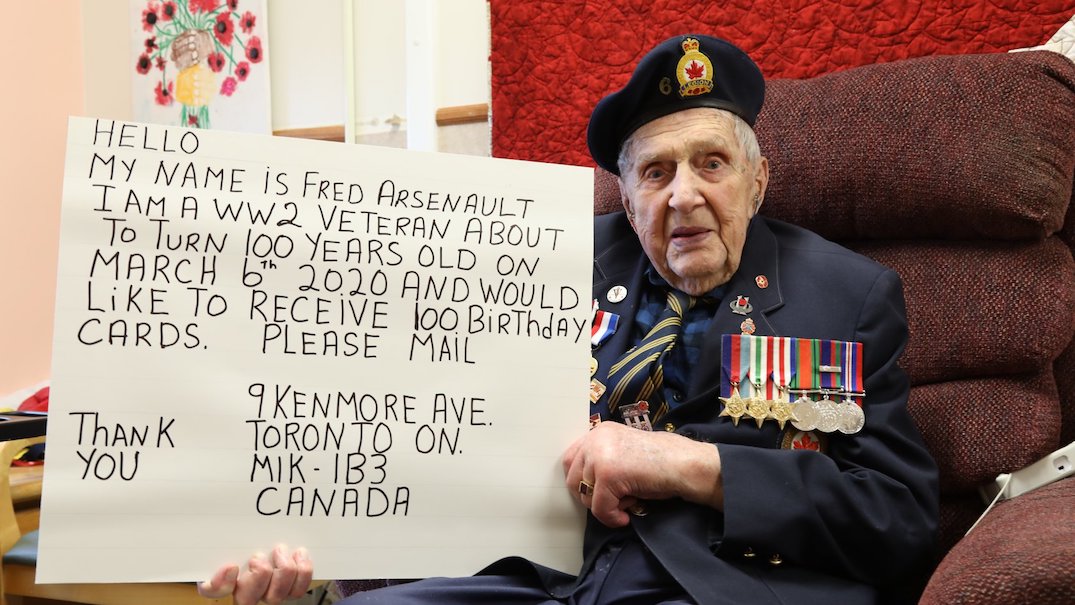 HELLO
MY NAME iS FRED ARSENAULT
I AM A WW2 VETERAN ABOUT
To TURN 100 YEARS OLD ON
MARCH 6th 2020 AND WOULD
LiKE TO RECEIVE 100 BiRTHDAY
CARDS. PLEASE MAIL
9 KENMORE AVE.
TORONTO ON.
MIK - 1B3
CANADA
THANK
YOU
6
LEGION